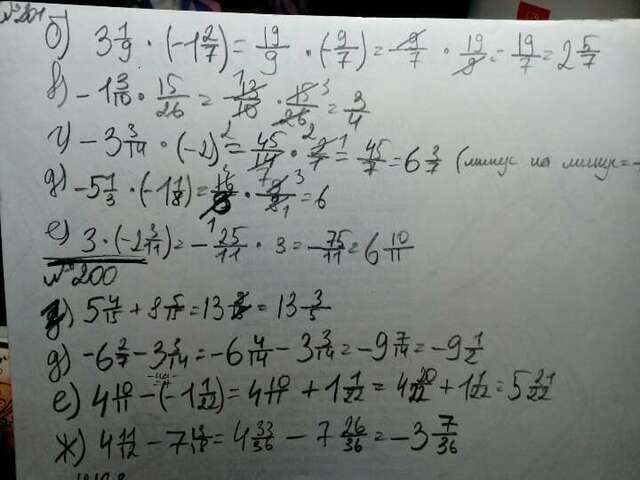 №201
б) 3 1/9 · (-1 2/7) = 19/9 · (-9/7) = -9/7 · 19/9 = -19/7 = 2 5/7
в) -1 3/10 · 15/26 = -13/10 · 15/26 = 3/4
г) -3 3/14 · (-2) = 45/14 · 2/1 = 45/7 = 6 3/7 (минус на минус =
д) -5 1/3 · (-1 1/8) = 16/3 · 9/8 = 6
е) 3 · (-2 3/11) = -25/11 · 3 = -75/11 = 6 10/11
№200
г) 5 4/15 + 8 5/15 = 13 9/15 = 13 3/5
д) -6 2/7 - 3 3/14 = -6 4/14 - 3 3/14 = -9 7/14 = -9 1/2
е) 4 10/11 - (-1 1/22) = 4 10/11 + 1 1/22 = 4 20/22 + 1 1/22 = 5 21/22
ж) 4 11/12 - 7 13/18 = 4 33/36 - 7 26/36 = -3 7/36